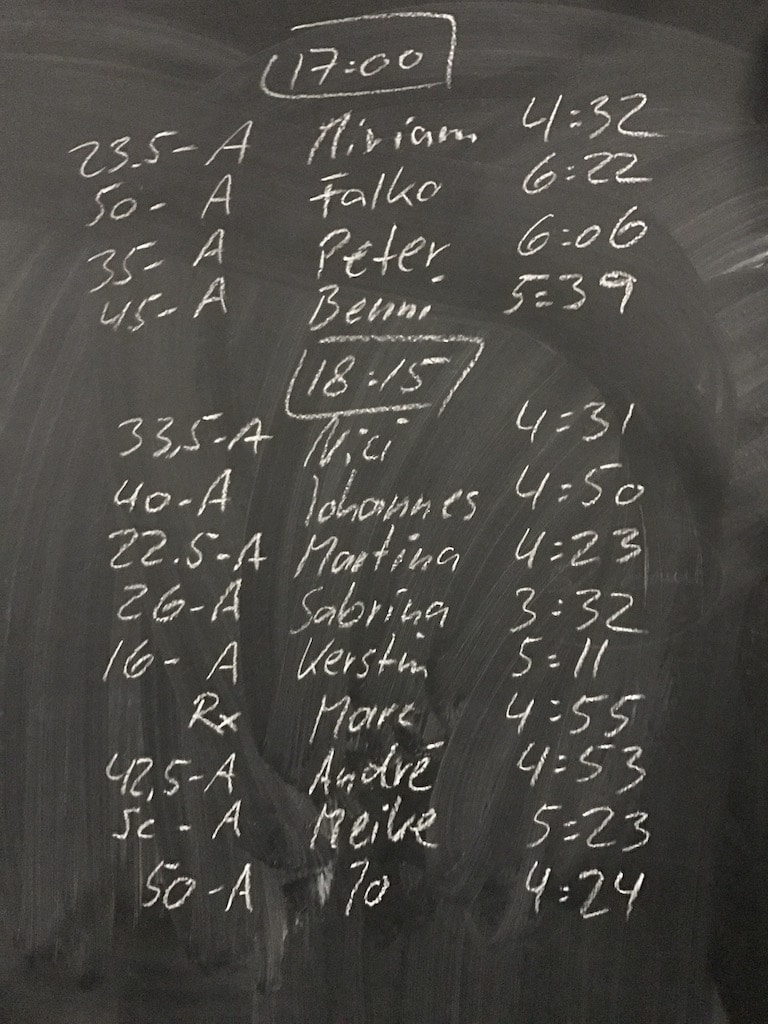 17:00
23.5-A Miriam 4:32
50-A Falko 6:22
35-A Peter 6:06
45-A Benni 5:39
18:15
33,5-A Nici 4:31
40-A Johannes 4:50
22.5-A Martina 4:23
26-A Sabrina 3:32
16-A Kerstin 5:11
Rx Marc 4:55
42,5-A André 4:53
Sc-A Meike 5:23
50-A Jo 4:24